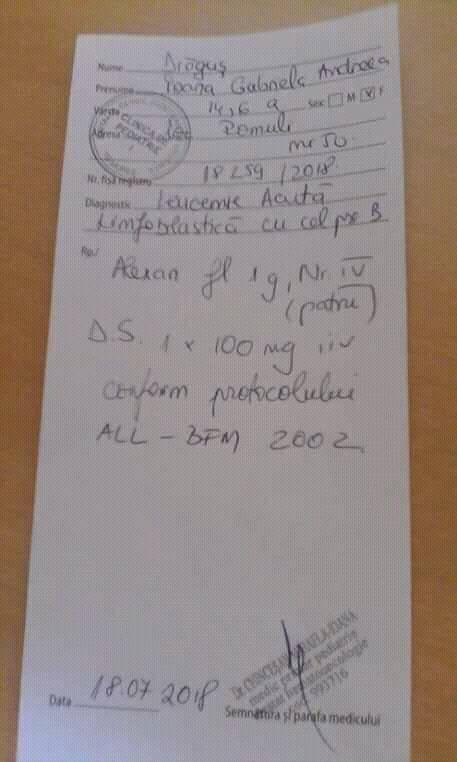 Nume Drăguș
Prenume Ioana Gabriela Andreea
Vârsta 14,6 a Sex M X F
Adresa Romuli
nr 50
Nr. fișă/registru 18259/2018
Diagnostic Leucemie Acută
Limfoblastică cu cel pre B
Rp./
Alexan fl 1g, Nr. IV
(patru)
D.S. 1 x 100 mg iv
conform protocolului
ALL - BFM 2002
CLINICA DE
PEDIATRIE
medic primar pediatrie
Data 18.07 2018
Semnătura și parafa medicului